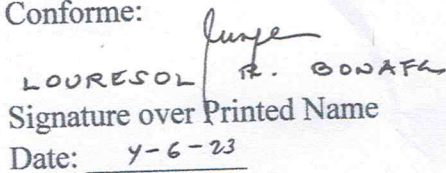 Conforme:
LOURESOL R. BONAFE
Signature over Printed Name
Date: 4-6-23